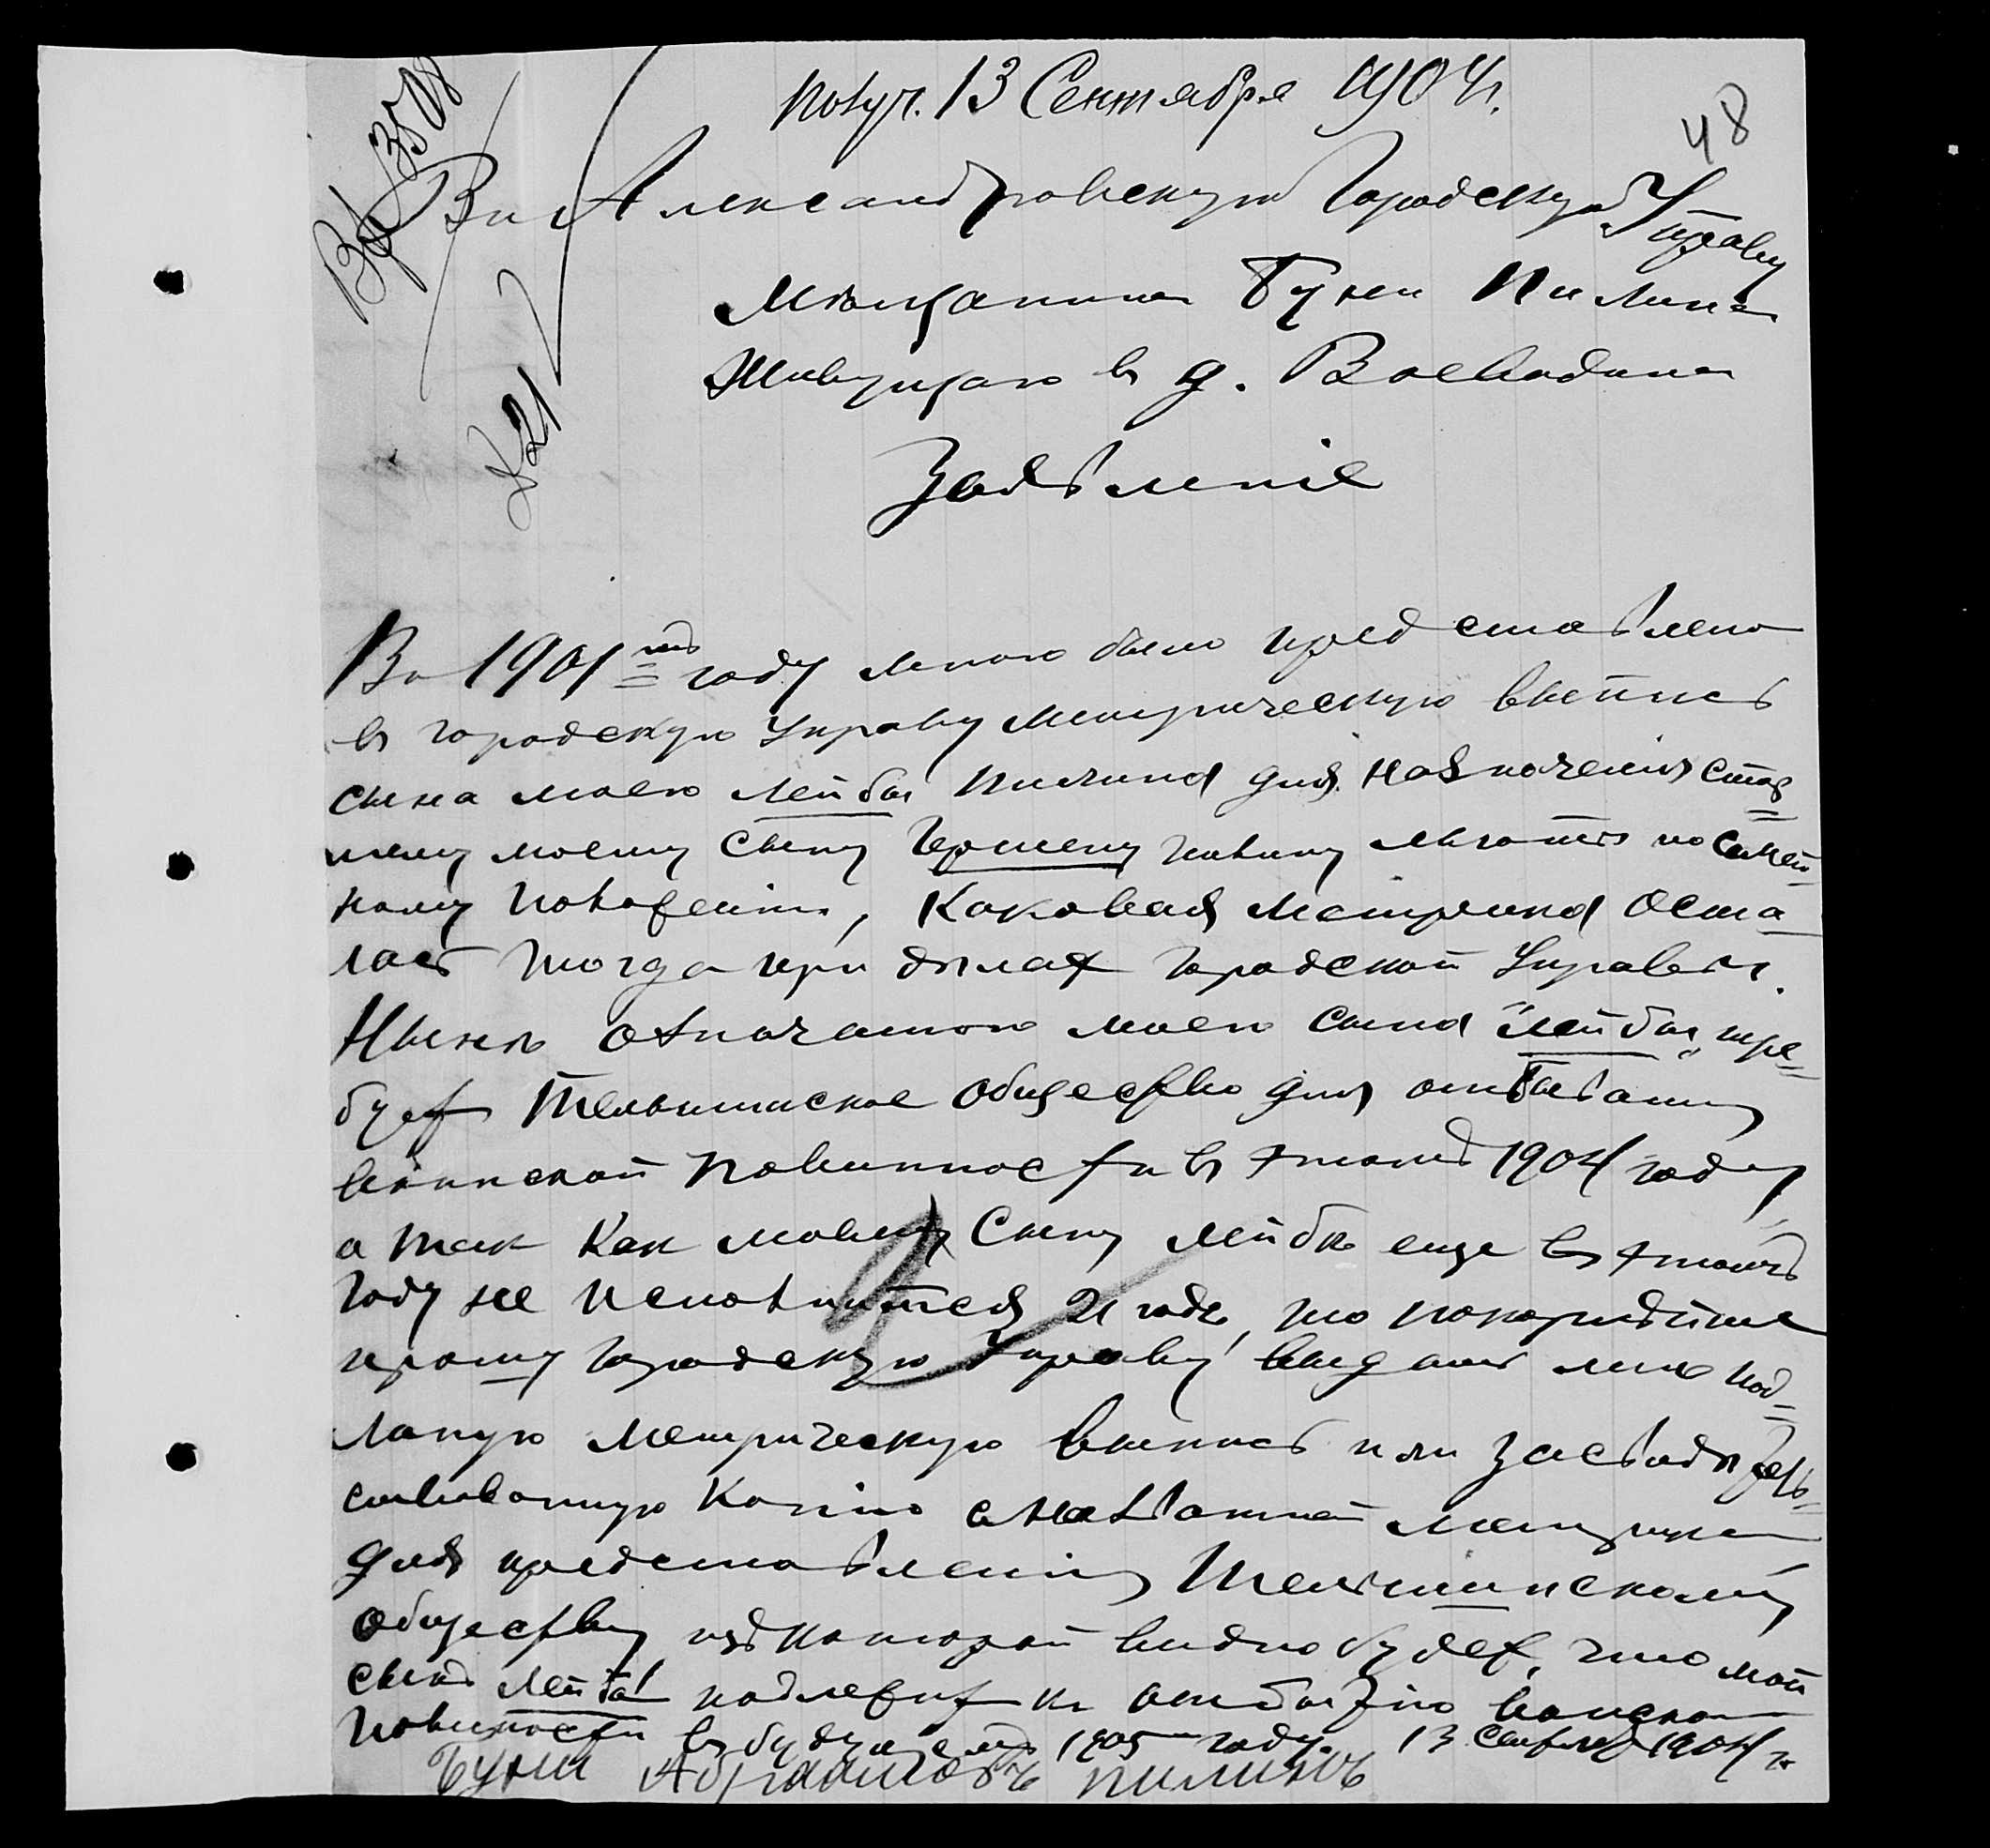 Получ. 13 Сентября 1904 г.
48
Вх 3508
Въ Александровскую Городскую Управу
Мѣщанина Буни Пилина
Живущаго въ д. Воеводина
Заявленіе
Въ 1901 мъ году мною было представлено
въ городскую Управу метрическую выпись
сына моего Лейбы Пилина для назначенія стар
шему моему сыну Гершену Пилину льготы по семей
ному положенію, каковая метрика оста
лась тогда при дѣлах городской Управы.
Нынѣ означенного моего сына "Лейбы" тре
буетъ Тельшинское общество для отбыванія
воинской повинности въ этомъ 1904 году
а так как моему сыну Лейбѣ еще въ этомъ
году не исполнится 21 годъ, то покорнѣйше
прошу городскую Управу выдать мнѣ под
линную метрическую выпись или засвидѣтель
ствованную копію съ названной метрики
для представленія Тельшинскому
обществу, изъ которой видно будет, что мой
сынъ Лейба подлежит къ отбытію воинской
повинности въ будущемъ 1905 году. 13 Сентября 1904 г.
Буни Абрамовичъ Пилинъ